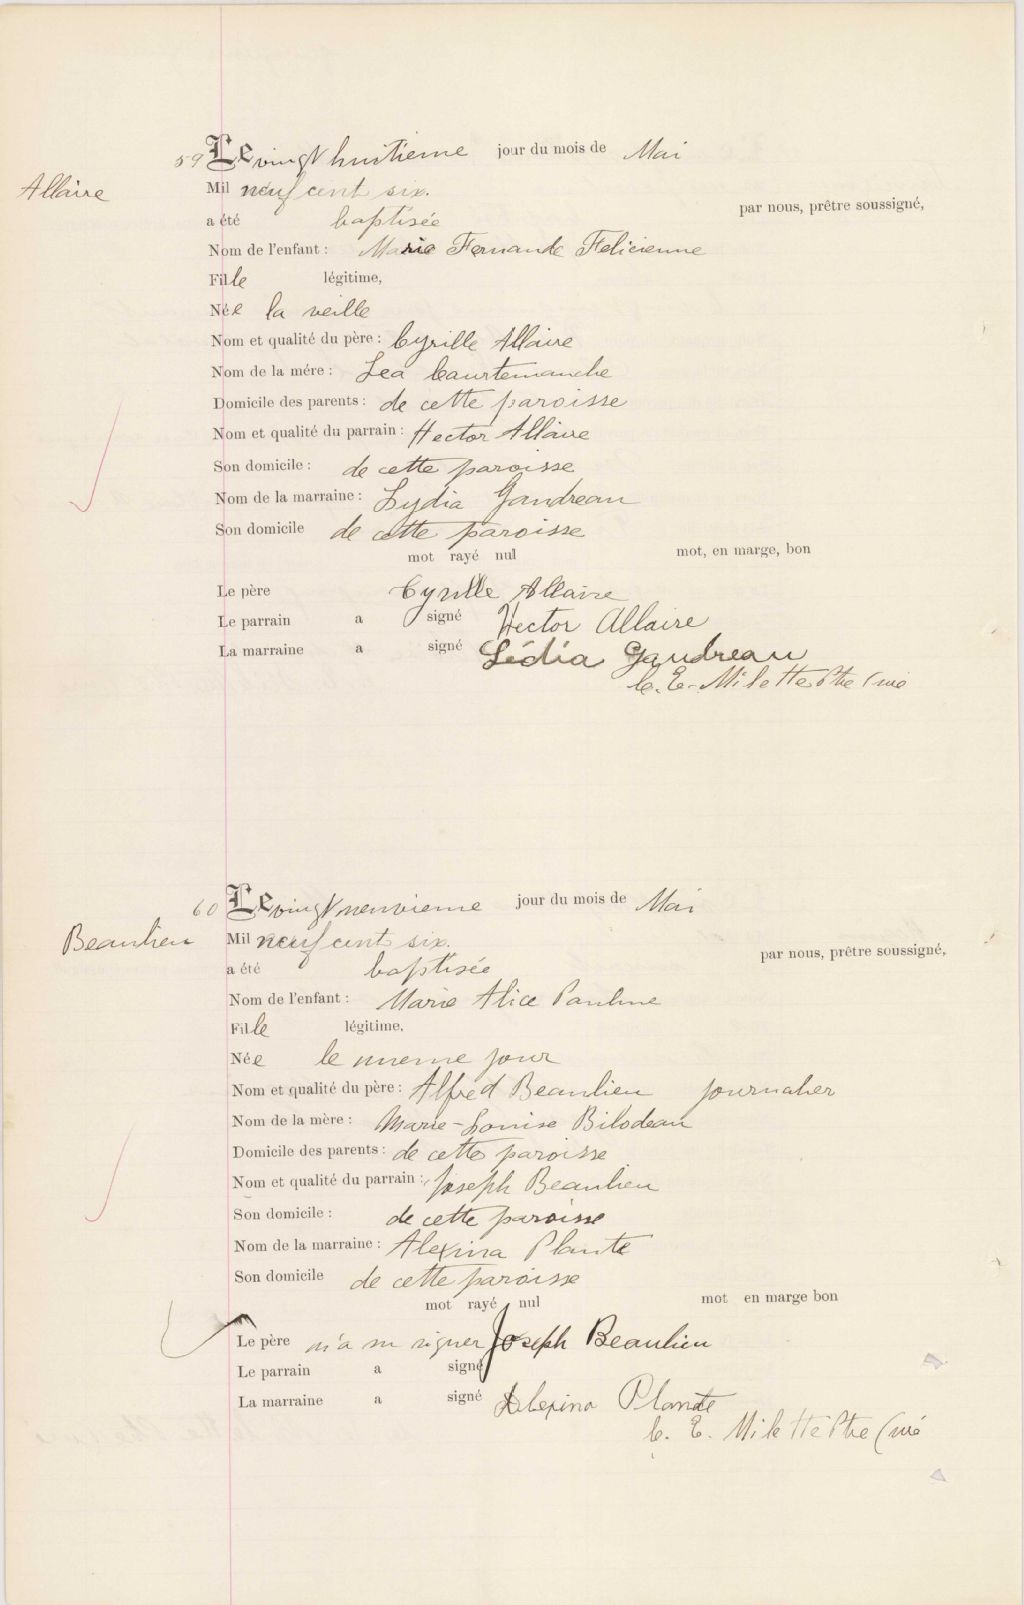 59 Le vingt huitieme jour du mois de Mai
Allaire
Mil neuf cent six.
par nous, prêtre soussigné,
a été baptisée
Nom de l'enfant : Marie Fernande Felicienne
Fille légitime,
Née la veille
Nom et qualité du père : Cyrille Allaire
Nom de la mére : Lea Courtemanche
Domicile des parents : de cette paroisse
Nom et qualité du parrain : Hector Allaire
Son domicile : de cette paroisse
Nom de la marraine : Lydia Gaudreau
Son domicile de cette paroisse
mot rayé nul mot, en marge, bon
Le père Cyrille Allaire
Le parrain a signé Hector Allaire
La marraine a signé Lédia Gaudreau
C. E. Milette Ptre Curé
60 Le vingt neuvieme jour du mois de Mai
Beaulieu Mil neuf cent six.
par nous, prêtre soussigné,
a été baptisée
Nom de l'enfant : Marie Alice Pauline
Fille légitime,
Née le meme jour
Nom et qualité du père : Alfred Beaulieu journalier
Nom de la mère : Marie-Louise Bilodeau
Domicile des parents : de cette paroisse
Nom et qualité du parrain : Joseph Beaulieu
Son domicile : de cette paroisse
Nom de la marraine : Alexina Plante
Son domicile de cette paroisse
mot rayé nul mot en marge bon
Le père n'a su signer Joseph Beaulieu
Le parrain a signé
La marraine a signé Alexina Plante
C. E. Milette Ptre Curé